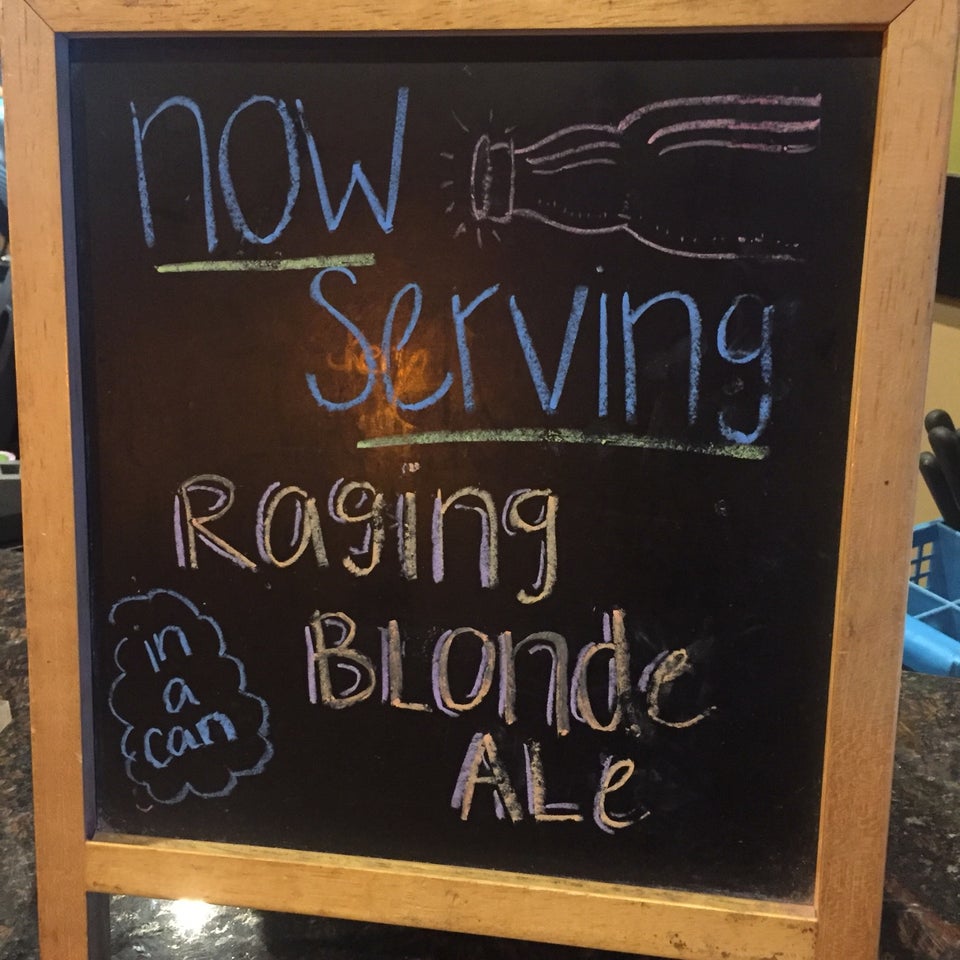 now
Serving
Raging
Blonde
ALe
in
a
can